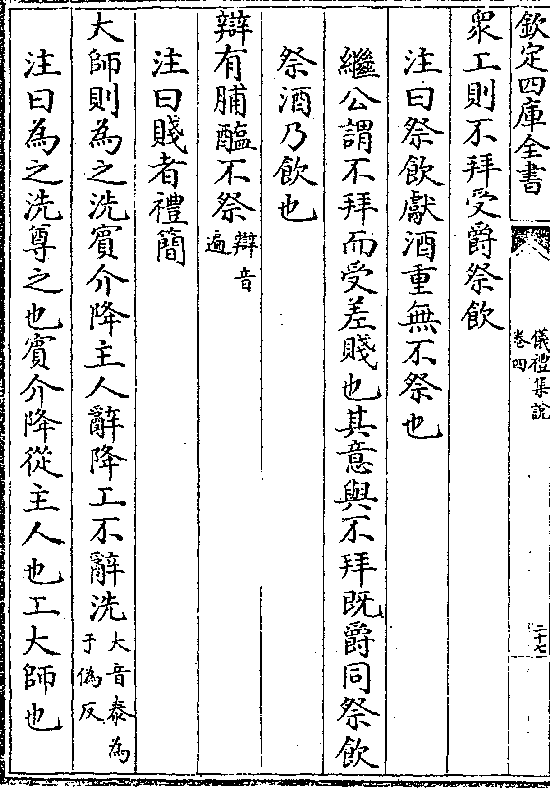 欽定四庫全書
儀禮集說
卷四
二十七
衆工則不拜受爵祭飲
注曰祭飲獻酒重無不祭也
繼公謂不拜而受差賤也其意與不拜既爵同祭飲
祭酒乃飲也
辯有脯醢不祭辯音遍
注曰賤者禮簡
大師則為之洗賓介降主人辭降工不辭洗大音泰為于偽反
注曰為之洗尊之也賓介降從主人也工大師也